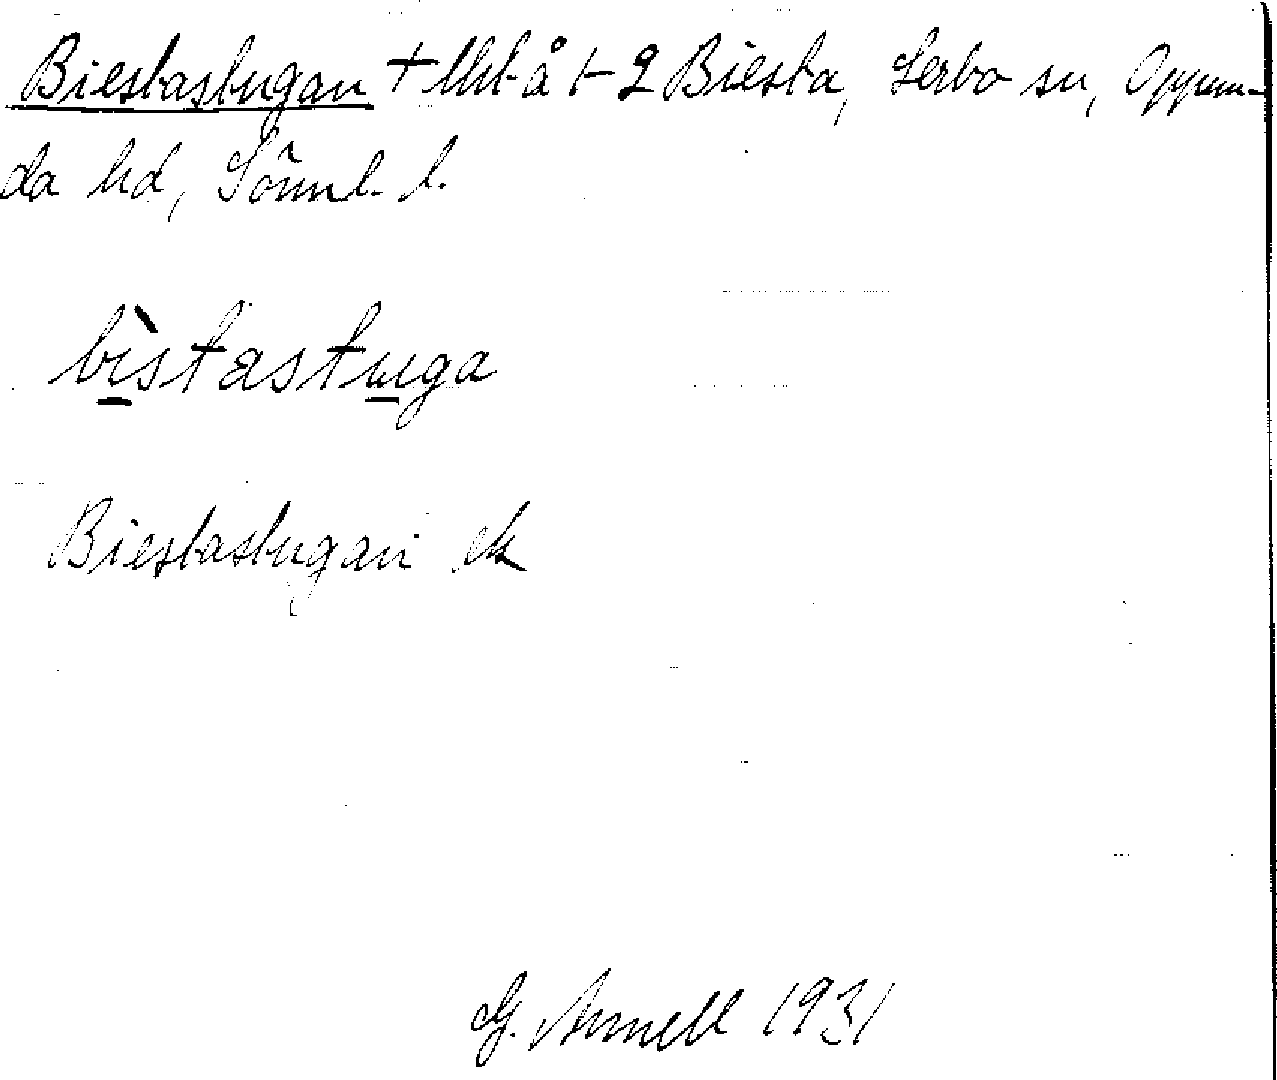 Biestastugan + lht å 1-2 Biesta, Lerbo sn, Oppun-
da hd, Sörml. l.
bìstastuga
Biestastugan ek
G. Annell 1931